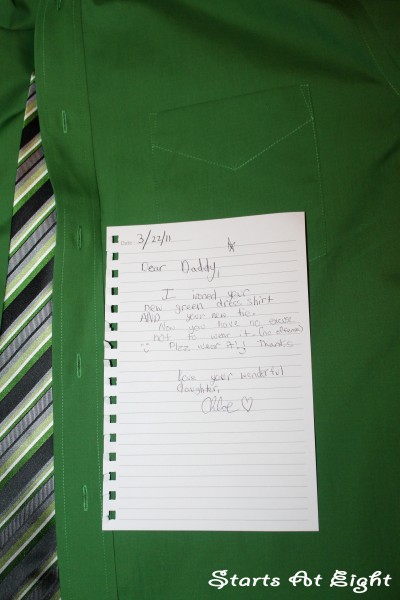 Date: 3/22/11
Dear Daddy,
I ironed your
new green dress shirt
AND your new tie.
Now you have no excuse
not to wear it. (no offense)
Plez wear it! Thanks
Love your wonderful
Daughter,
Chloe ♡
Starts At Eight